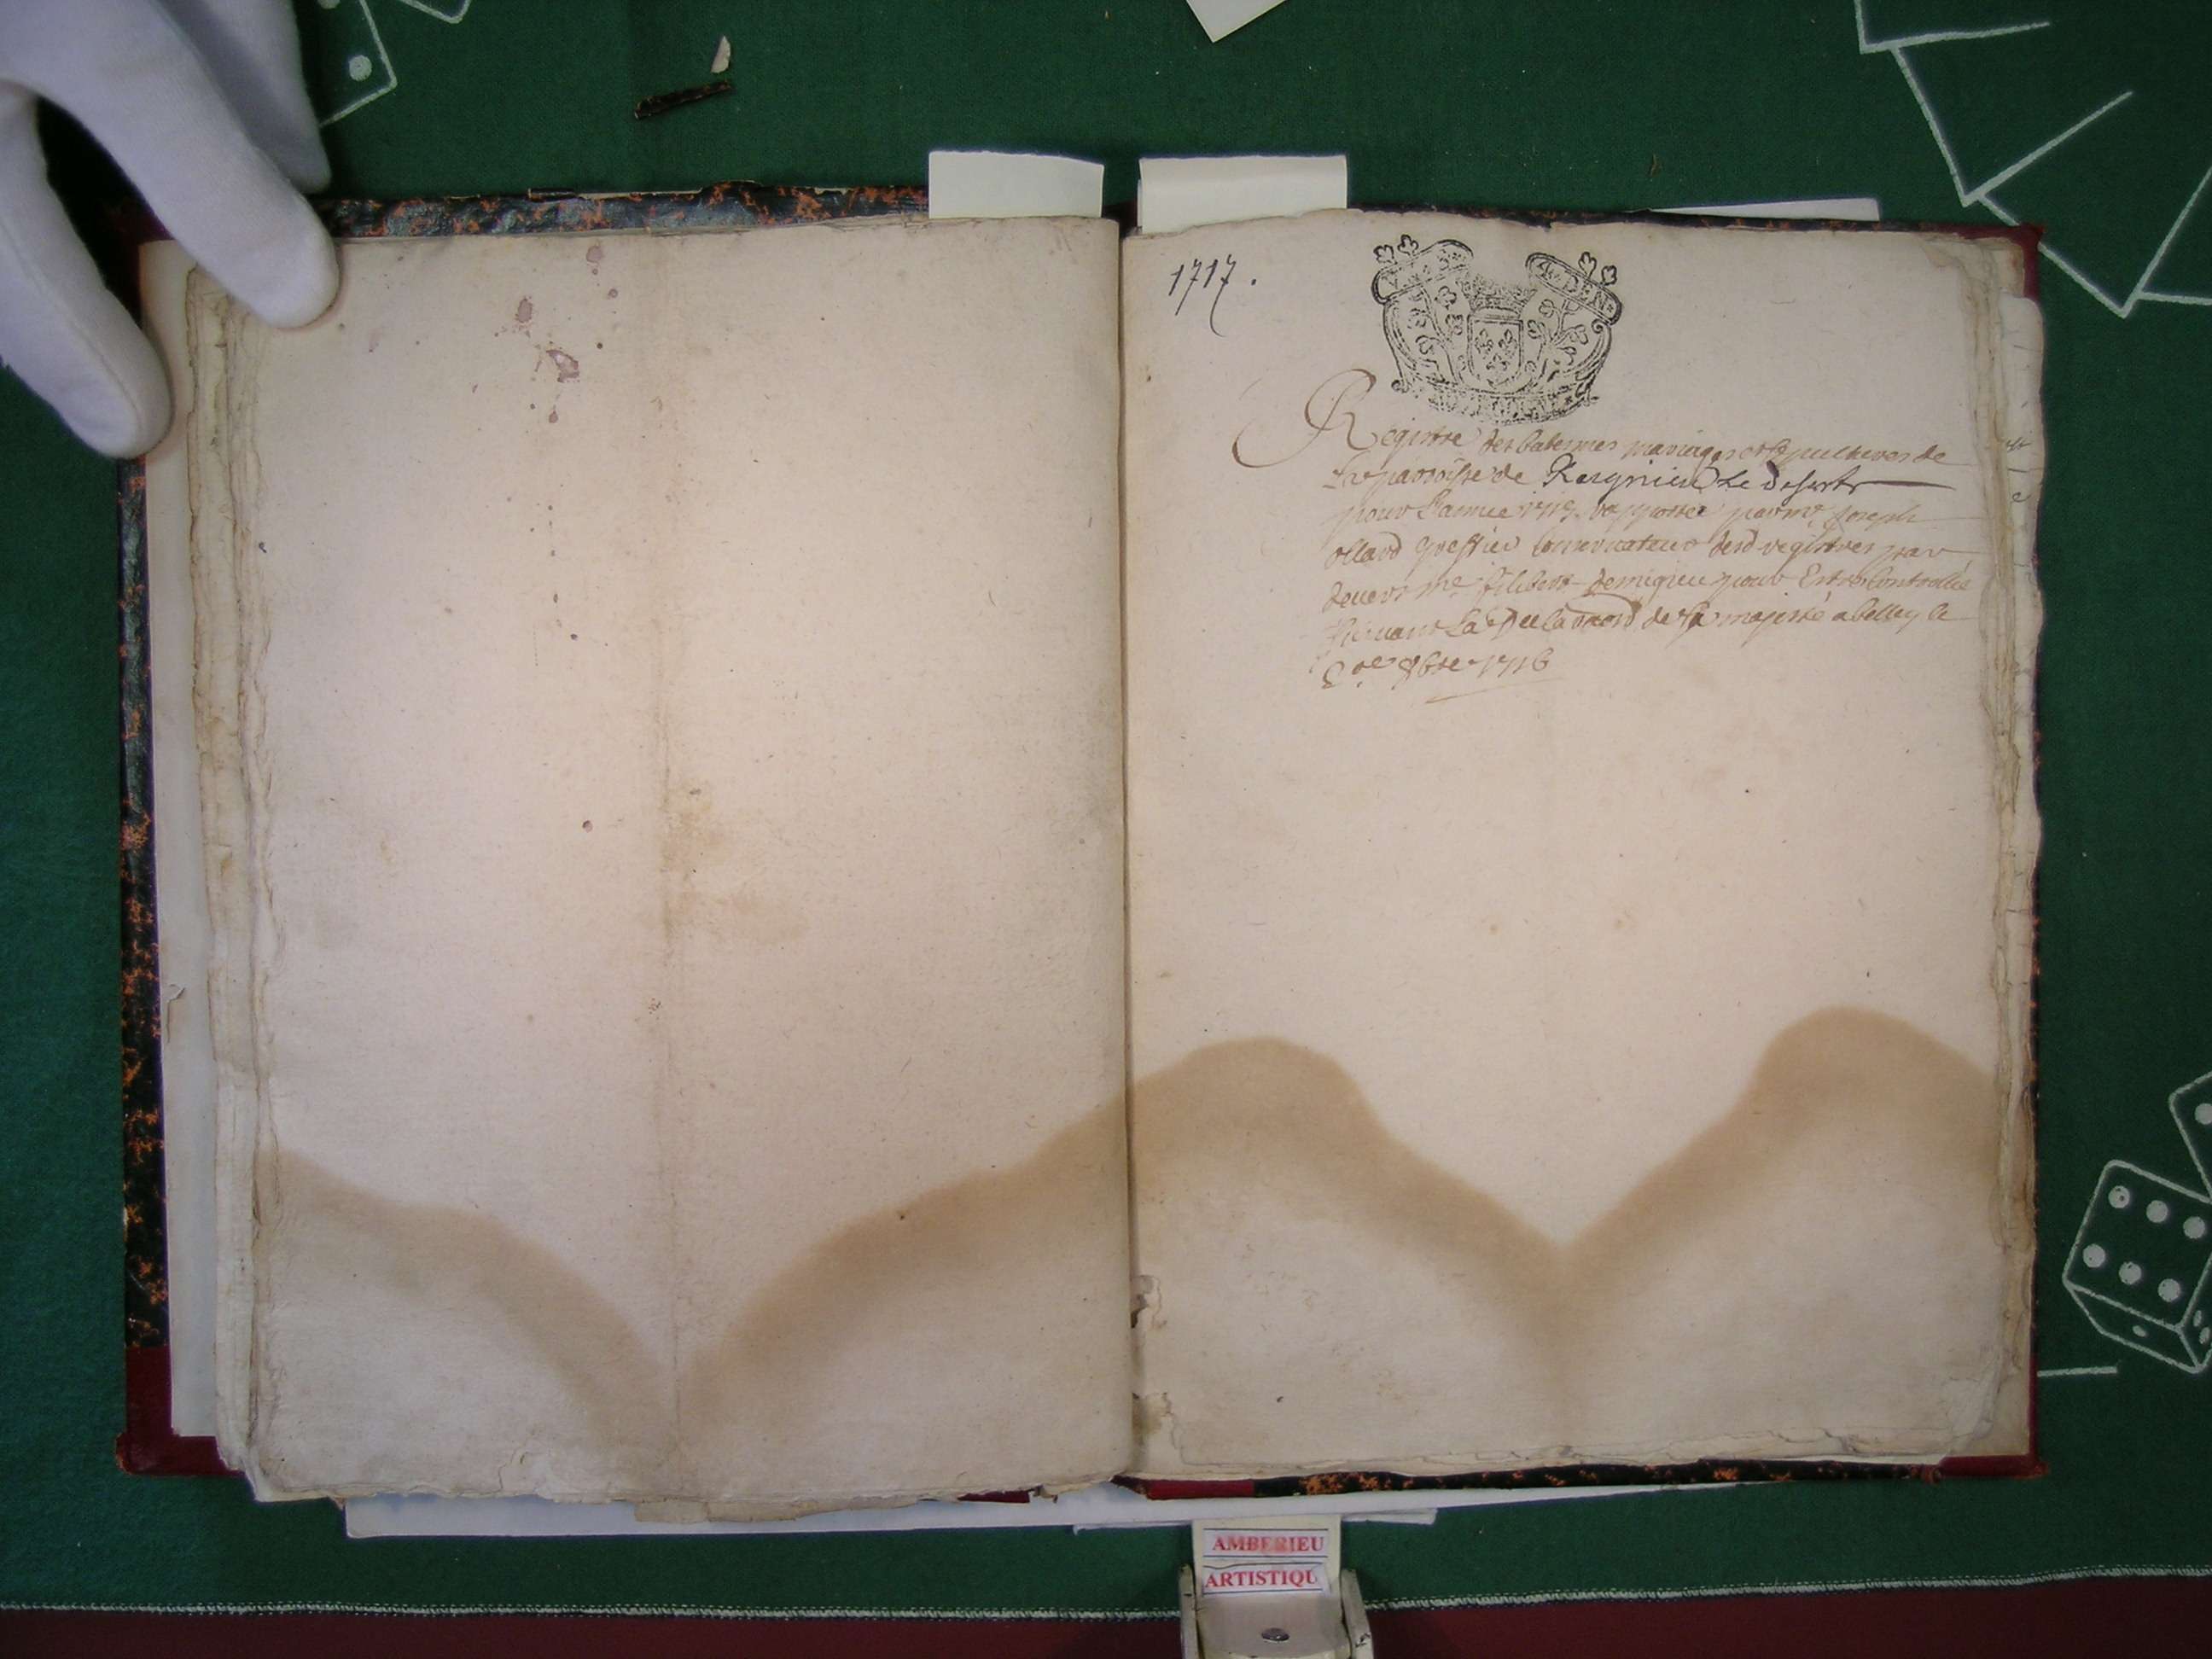 1717.
Registre des batesmes mariages et sepultures de
la parroisse de Rognieu Le Desert
pour L'année 1717. rapporté par me Joseph
ollard greffier conservateur desd registres par
devers me filibert Demigieu pour Estre Controllé
suivant La Declaraon de sa majesté a belley le
8bre 1716
AMBERIEU
ARTISTIQU